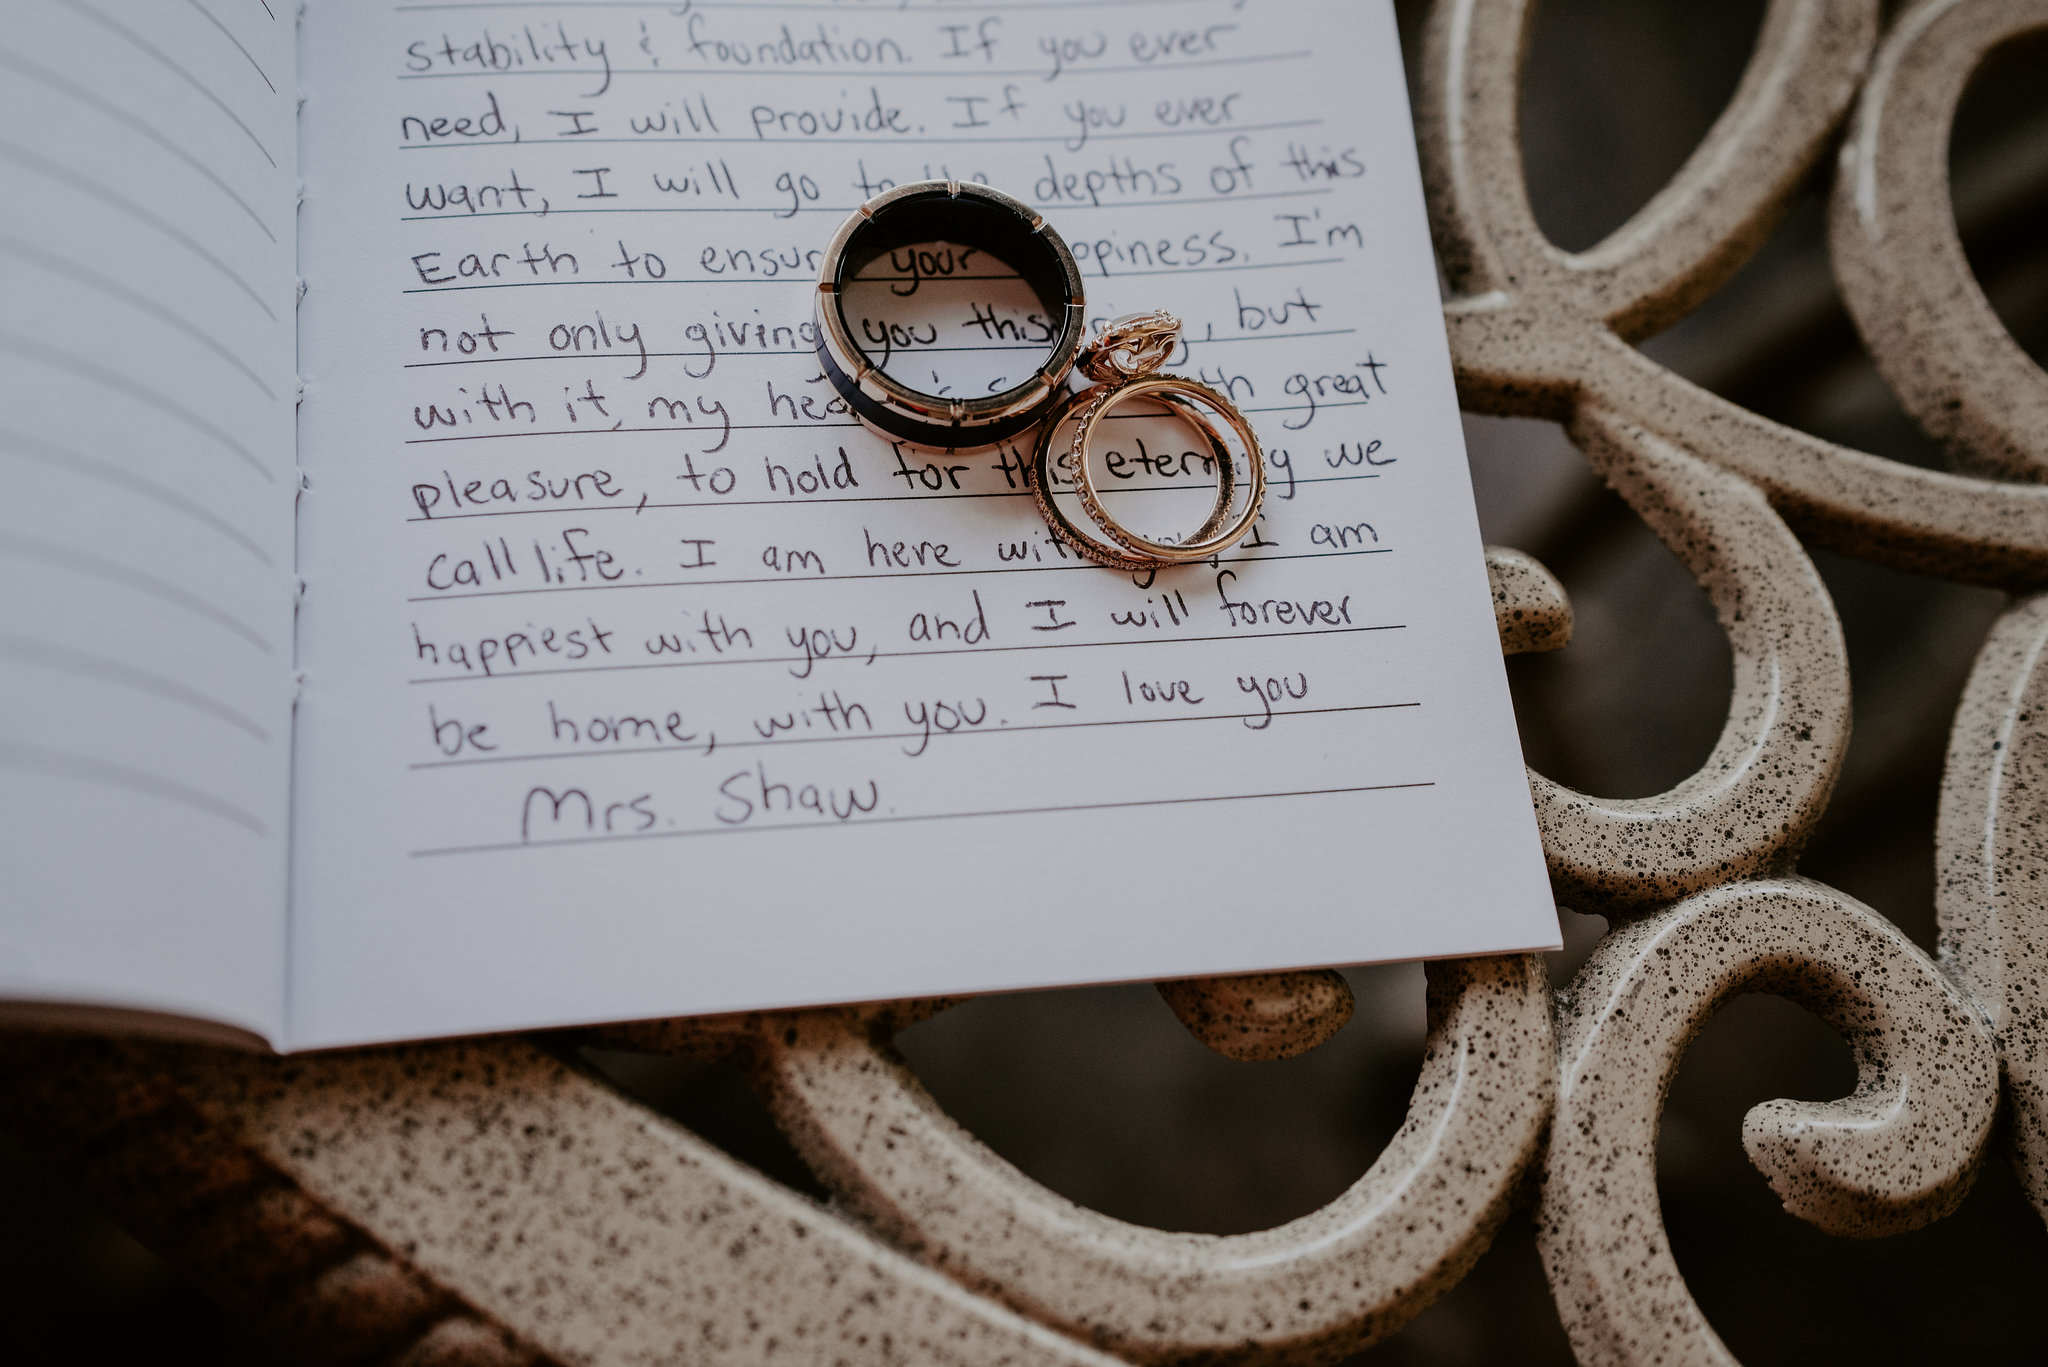 stability & foundation. If you ever
need, I will provide. If you ever
want, I will go to the depths of this
Earth to ensure your happiness. I'm
not only giving you this ring, but
with it, my heart great
pleasure, to hold for this eternity we
call life. I am here with you, I am
happiest with you, and I will forever
be home, with you. I love you
Mrs. Shaw.